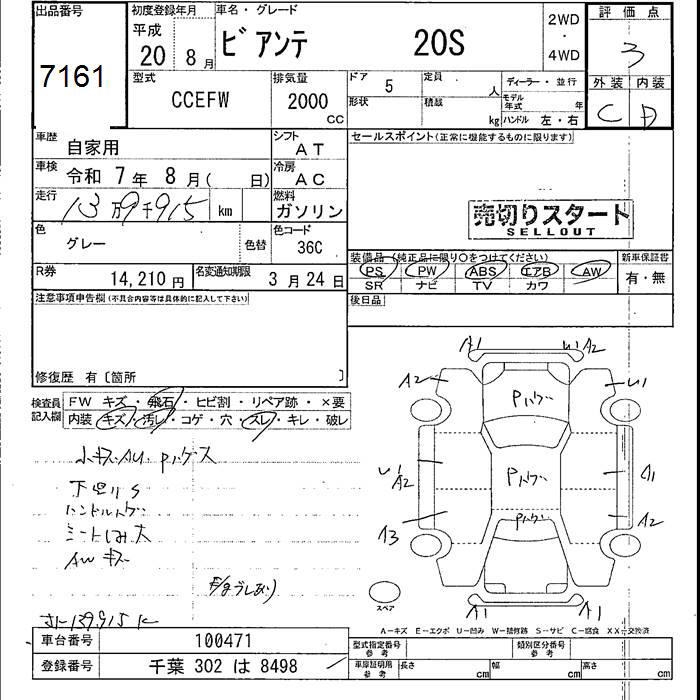 出品番号
7161
初度登録年月
平成
20年 8月
車名・グレード
ビアンテ 20S
2WD
・
4WD
評価点
3
外装 内装
C D
型式
CCEFW
排気量
2000
CC
ドア 5
形状
定員 人
積載 kg
ディーラー・並行
モデル年式 年
ハンドル 左・右
車歴
自家用
シフト
AT
車検
令和 7年 8月( 日)
冷房
AC
走行
13万9千915 km
燃料
ガソリン
色
グレー
色替
色コード
36C
R券
14,210円
名変通知期限
3月24日
セールスポイント(正常に機能するものに限ります)
売切りスタート
SELLOUT
装備品(純正品に限り○をつけてください)
PS PW ABS エアB AW
SR ナビ TV カワ
新車保証書
有・無
後日品
注意事項申告欄(不具合内容等は具体的に記入して下さい)
修復歴 有〔箇所 〕
検査員記入欄
FW キズ・飛石・ヒビ割・リペア跡・×要
内装・キズ・汚レ・コゲ・穴・スレ・キレ・破レ
下廻りS
シートしみ大
AWキズ
A1 A2
A2 U1
A2 A1
A3 A2
A1 A1
スペア
A―キズ E―エクボ U―凹み W―補修跡 S―サビ C―腐食 XX―交換済
車台番号
100471
登録番号
千葉 302 は 8498
型式指定番号
参考
類別区分番号
参考
車庫証明用
参考
長さ cm 幅 cm 高さ cm